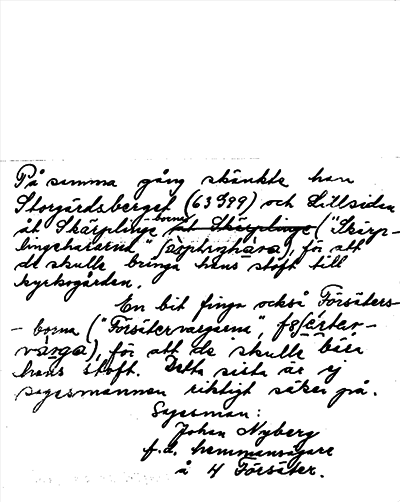 På samma gång skänkte han
Storgårdsberget (63599) och Lillsidan
åt Skärplinge-borna åt Skärplinge ("Skärp-
lingehararna" ), för att
de skulle bringa hans stoft till
kyrkogården.
En bit fingo också Försäters-
- borna ("Försätervargarna",
), för att de skulle bära
hans stoft. Detta sista är ej
sagesmannen riktigt säker på.
Sagesman:
Johan Nyberg
f.d. hemmansägare
å 4 Försäter.